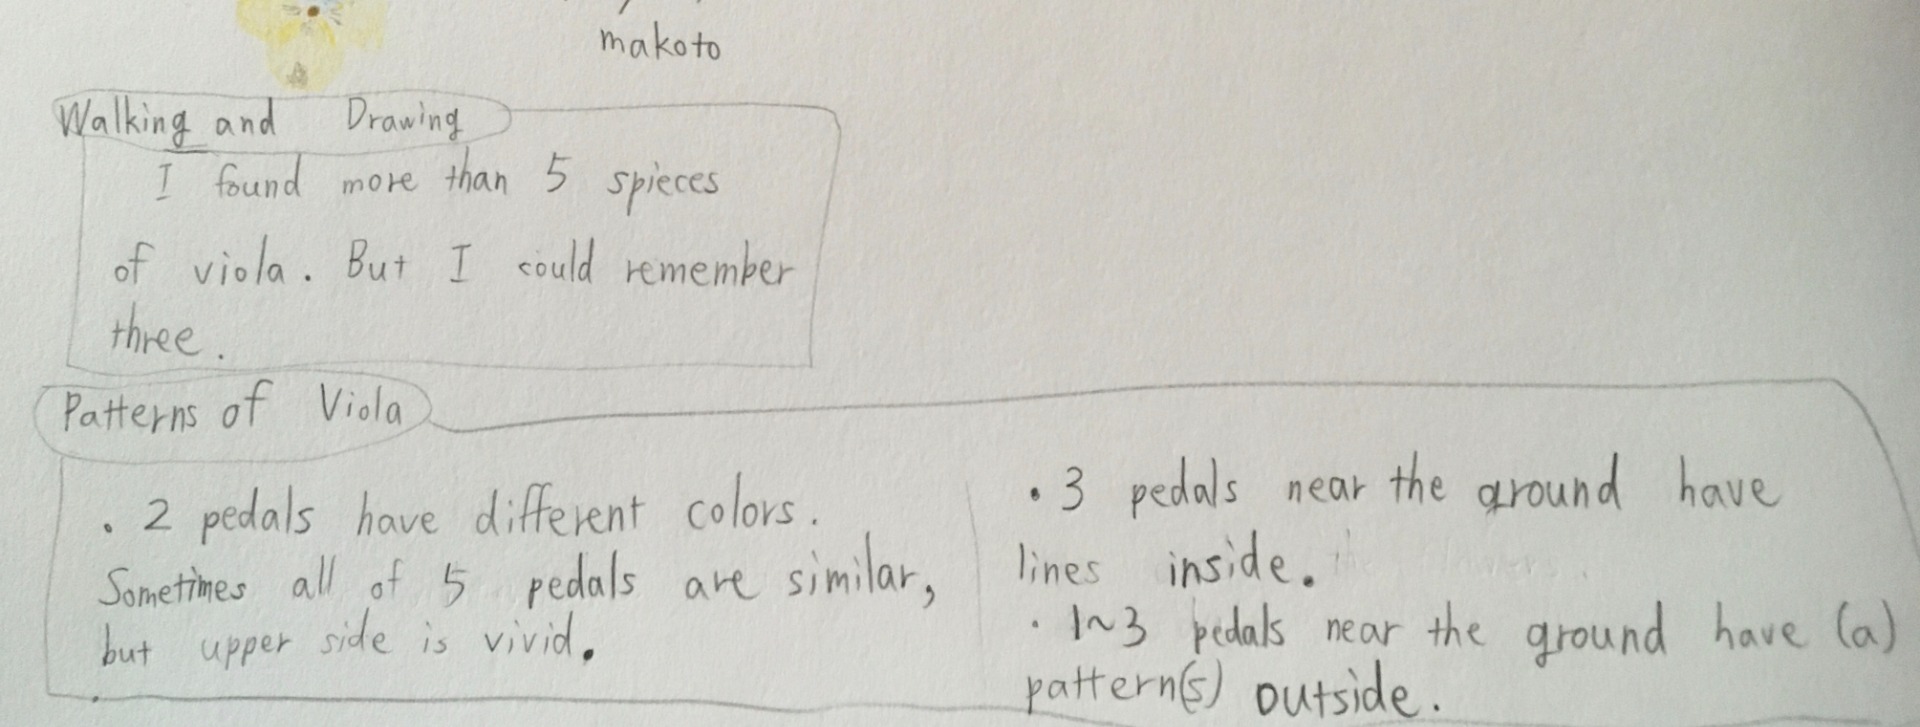 makoto
Walking and Drawing
I found more than 5 spieces
of viola. But I could remember
three.
Patterns of Viola
. 2 pedals have different colors.
Sometimes all of 5 pedals are similar,
but upper side is vivid.
• 3 pedals near the ground have
lines inside.
• 1~3 pedals near the ground have (a)
pattern(s) outside.